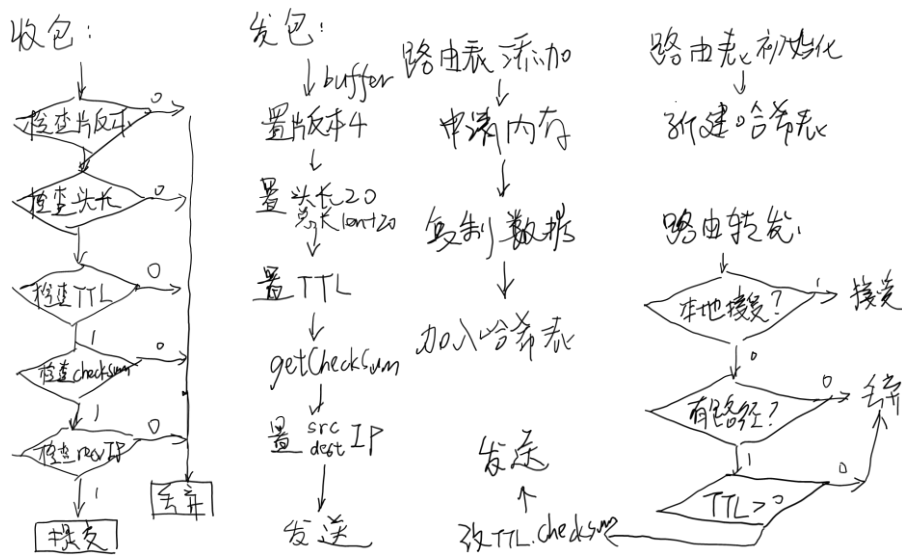 收包:
检查版本
0
检查头长
0
检查TTL
0
1
检查checksum
0
1
检查recvIP
0
1
提交
丢弃
发包:
buffer
置版本4
置头长20
总长len+20
置TTL
getCheckSum
置 src IP
dest
发送
路由表添加
申请内存
复制数据
加入哈希表
路由表初始化
新建哈希表
路由转发:
本地接受?
1
接受
0
有路径?
0
丢弃
1
TTL>0
0
改TTL.checksum
发送